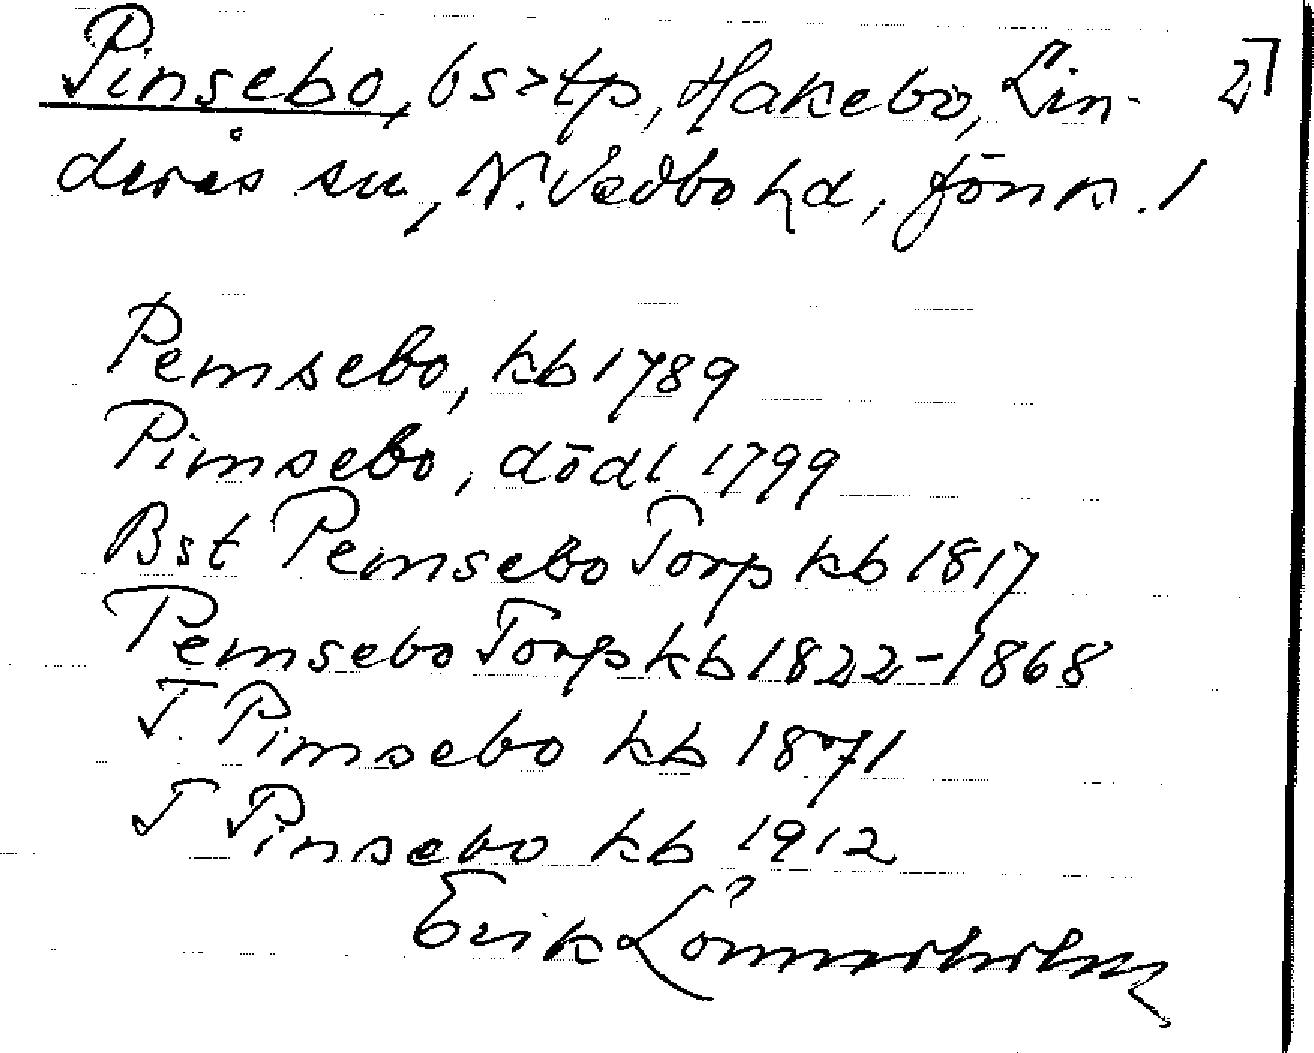 Pinsebo, bs>tp, Hakebo, Lin- 2]
derås sn, N. Vedbo hd, Jönk. l
Pemsebo, kb 1789
Pimsebo, dödl 1799
Bst Pemsebo Torp kb 1817
Pemsebo Torp kb 1822-1868
T. Pimsebo kb 1871
T Pinsebo kb 1912
Erik Lönnerholm